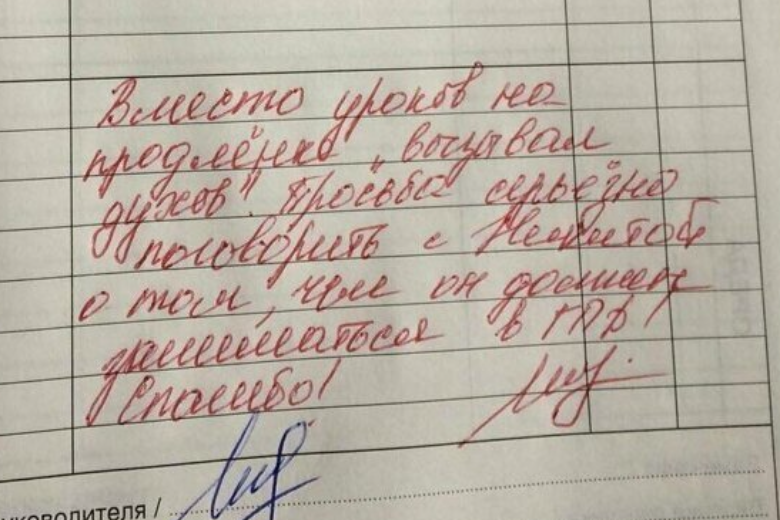 Вместо уроков на
продлёнке „вызывал
духов". Просьба серьёзно
поговорить с Никитой
о том, чем он должен
заниматься в ГПД!
Спасибо!
уководителя /